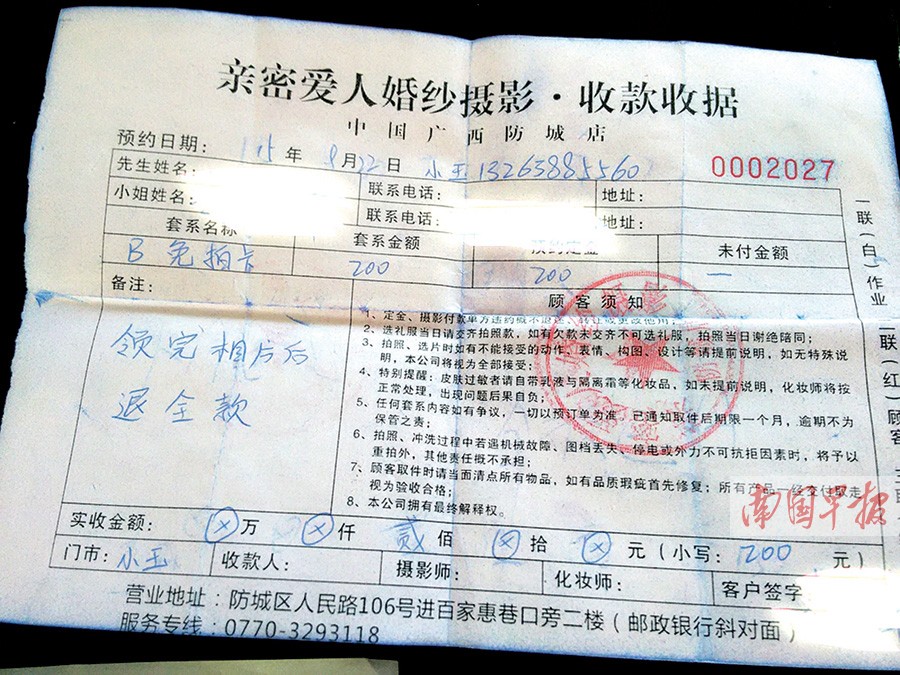 亲密爱人婚纱摄影·收款收据
中国广西防城店
预约日期: 15年 9月22日 小玉 13263885560
0002027
先生姓名: 联系电话: 地址:
小姐姓名: 联系电话: 地址:
套系名称 套系金额 预约定金 未付金额
B免拍卡 200 200 一
备注:
领完相片后
退全款
顾客须知
1、定金、摄影付款单方违约概不退还、转让或更改他用;
2、选礼服当日请交齐拍照款,如有欠款未交齐不可选礼服,拍照当日谢绝陪同;
3、拍照、选片时如有不能接受的动作、表情、构图、设计等请提前说明,如无特殊说
明,本公司将视为全部接受;
4、特别提醒:皮肤过敏者请自带乳液与隔离霜等化妆品,如未提前说明,化妆师将按
正常处理,出现问题后果自负;
5、任何套系内容如有争议,一切以预订单为准,已通知取件后期限一个月,逾期不为
保管之责;
6、拍照、冲洗过程中若遇机械故障、图档丢失、停电或外力不可抗拒因素时,将予以
重拍外,其他责任概不承担;
7、顾客取件时请当面清点所有物品,如有品质瑕疵首先修复;所有产品一经交付取走
视为验收合格;
8、本公司拥有最终解释权。
一联(白)作业
二联(红)顾客
实收金额: ⊗万 ⊗仟 贰佰 ⊗拾 ⊗元(小写: 200 元)
门市: 小玉 收款人: 摄影师: 化妆师: 客户签字
营业地址:防城区人民路106号进百家惠巷口旁二楼(邮政银行斜对面)
服务专线:0770-3293118
南国早报